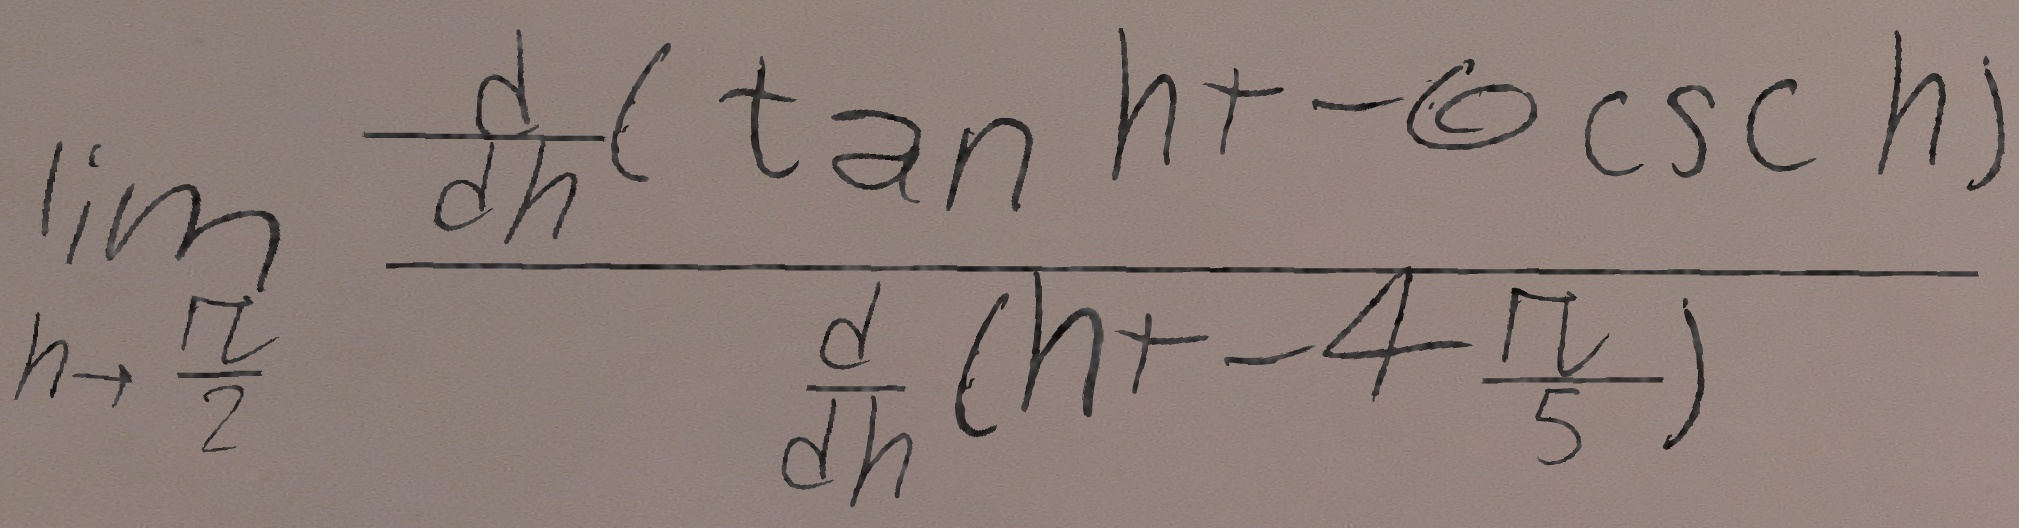 \lim_{h \to \frac{\pi}{2}} \frac{\frac{d}{dh}(\tan h + -6 \csc h)}{\frac{d}{dh}(h + -4 \frac{\pi}{5})}